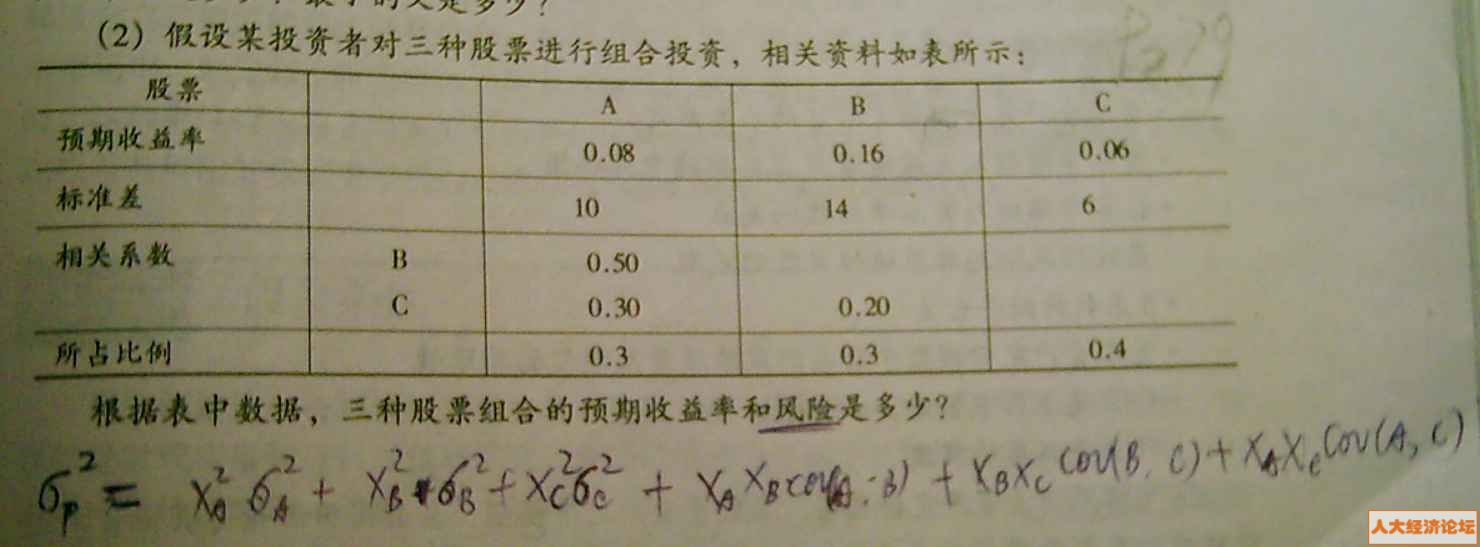 是多少?
(2) 假设某投资者对三种股票进行组合投资,相关资料如表所示:
P279
股票 A B C
预期收益率 0.08 0.16 0.06
标准差 10 14 6
相关系数 B 0.50
C 0.30 0.20
所占比例 0.3 0.3 0.4
根据表中数据,三种股票组合的预期收益率和风险是多少?
σ_p² = X_A² σ_A² + X_B² σ_B² + X_C² σ_C² + X_A X_B cov(A·B) + X_B X_C cov(B, C) + X_A X_C cov(A, C)
人大经济论坛